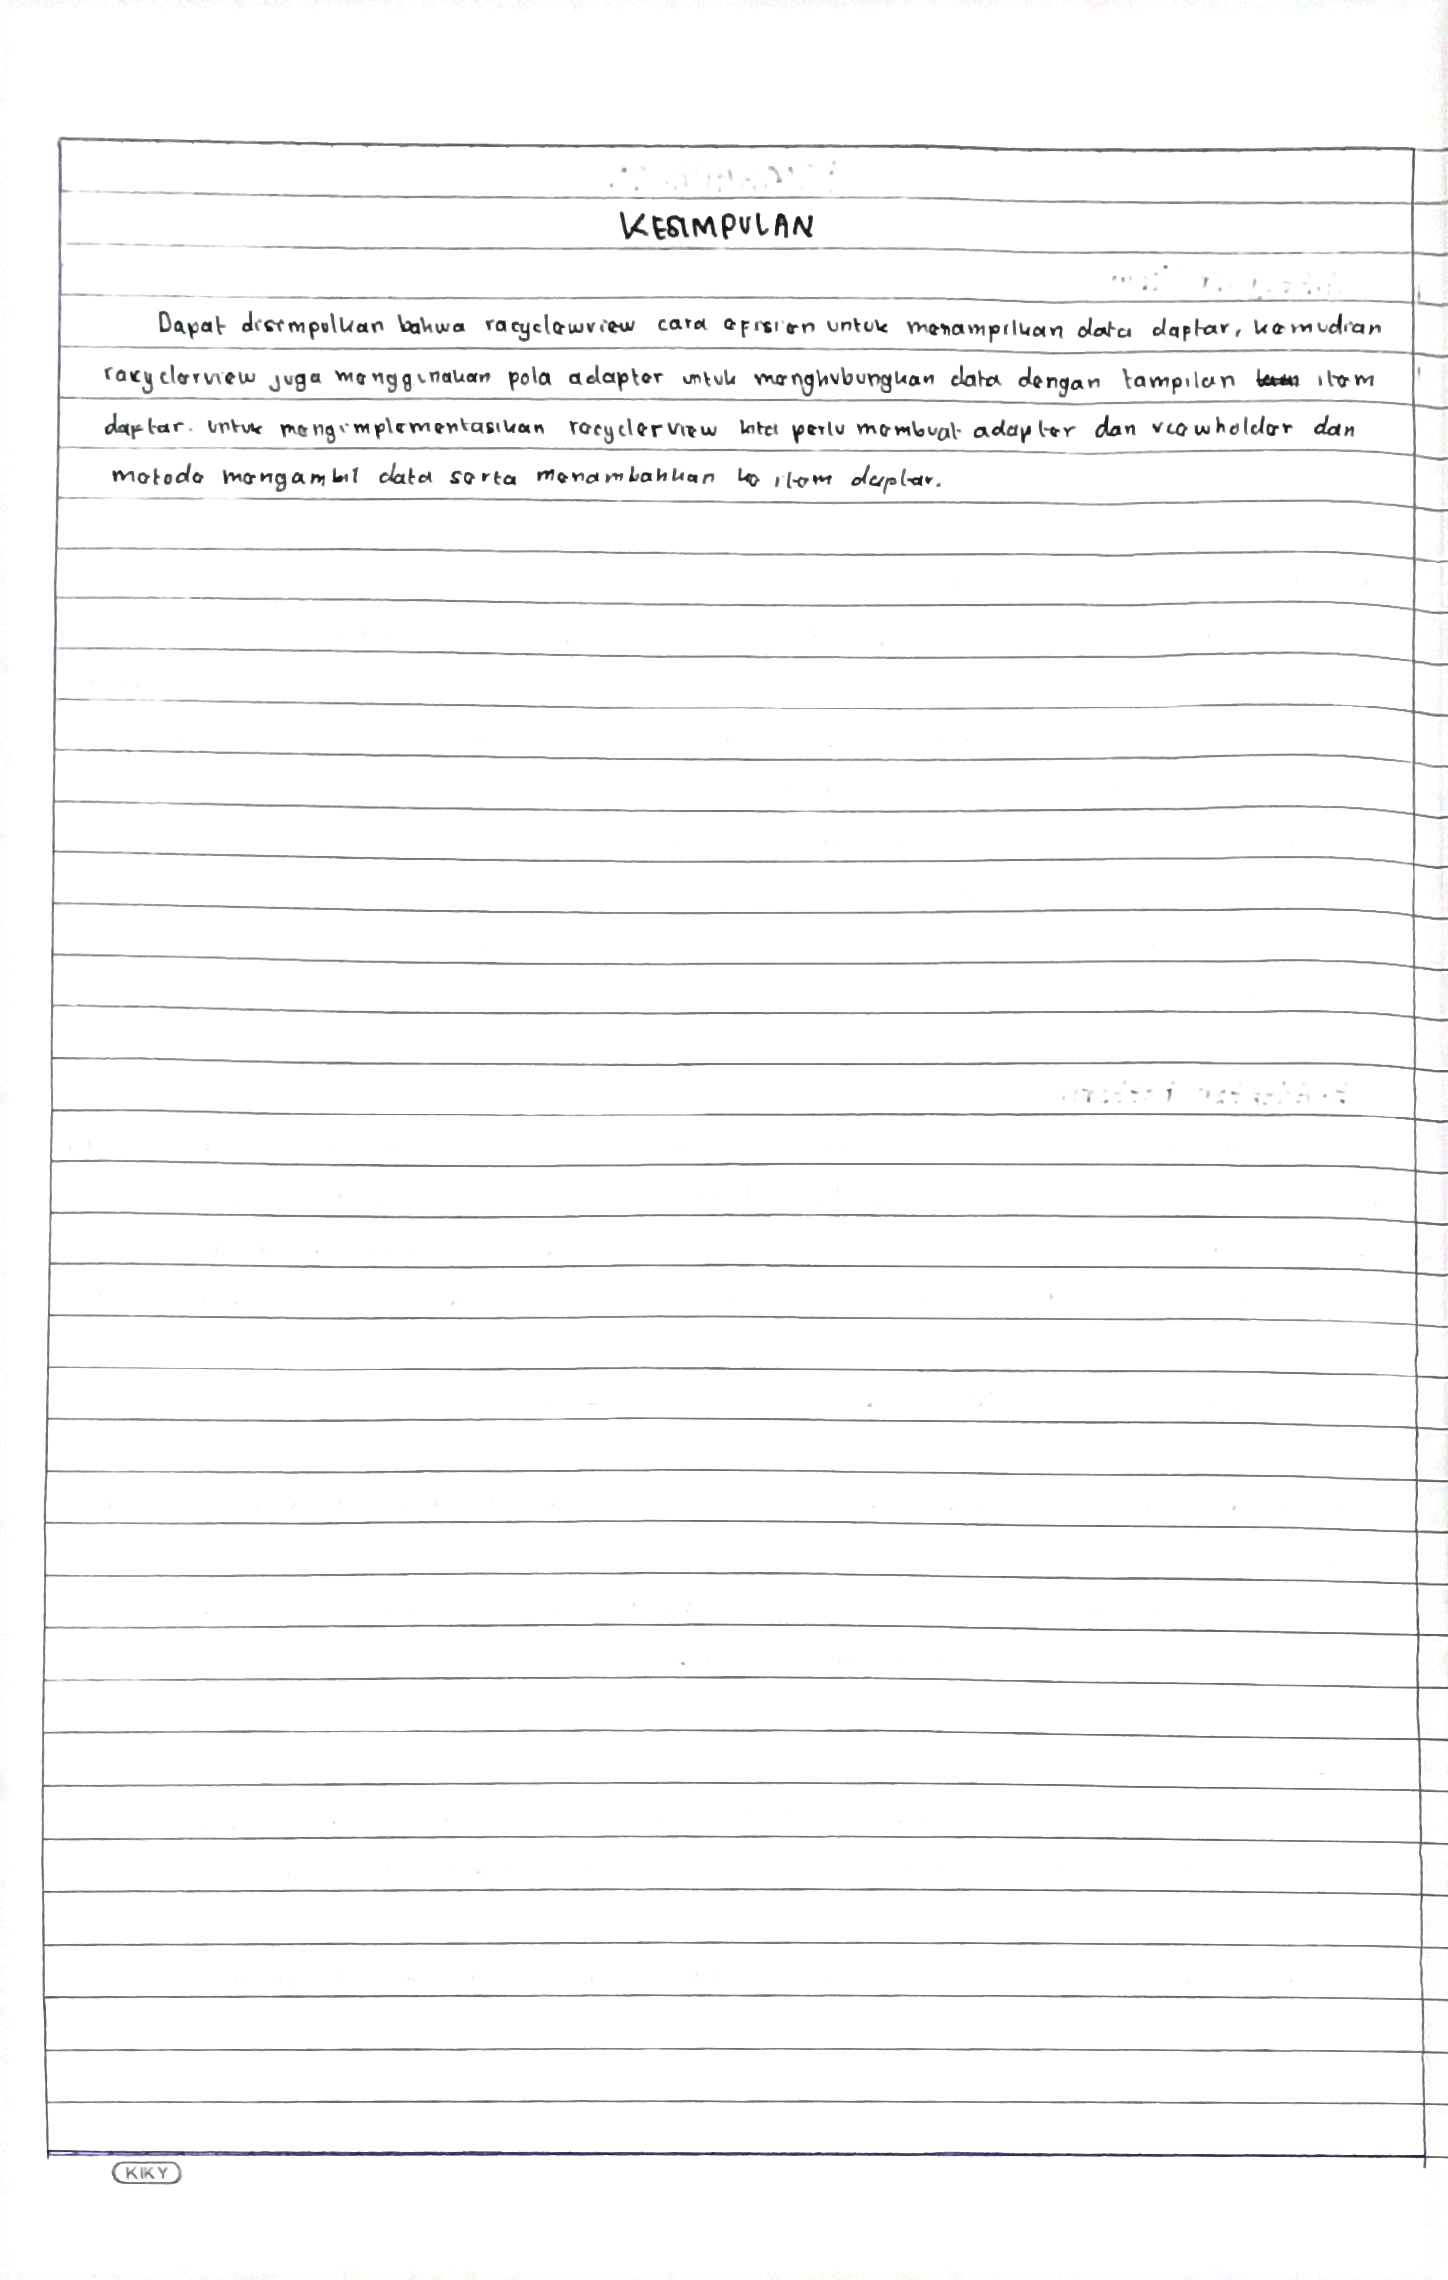 KESIMPULAN
Dapat disimpulkan bahwa racyclewview cara efisien untuk menampilkan data daptar, kemudian
racyclerview juga menggunakan pola adapter untuk menghubungkan data dengan tampilan item
daftar. untuk mengimplementasikan recyclerview kita perlu membuat adapter dan viewholder dan
metode mengambil data serta menambahkan ke item daptar.
KIKY